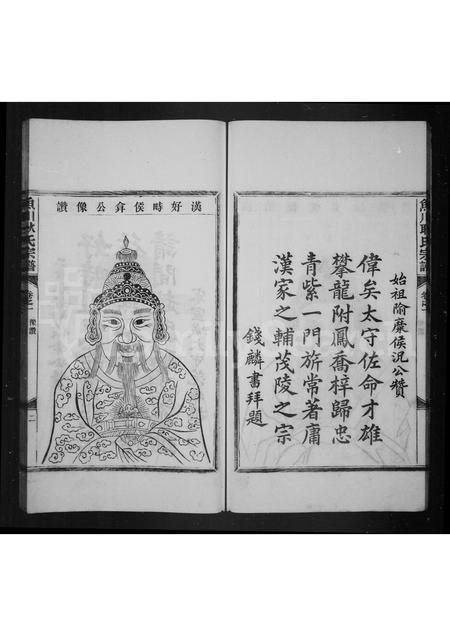 始祖隃麋侯況公贊
偉矣太守佐命才雄
攀龍附鳳喬梓歸忠
青紫一門旂常著庸
漢家之輔茂陵之宗
錢麟書拜題
魚川耿氏宗譜
漢好時侯弇公像讚
魚川耿氏宗譜
卷之一
像讚
二